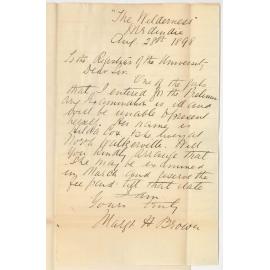 "The Wilderness"
Aug 28th 1898
To the Registrar of the University
Dear Sir
One of the girls
that I entered for the Prelimin
ary Examination is ill and
will be unable to present
herself. Her name is
Hilda Cox, & she lives at
North Walkerville. Will
you kindly arrange that
she may be examined
in March and reserve the
fee paid till that date
I am
Yours truly
Margt H Brown